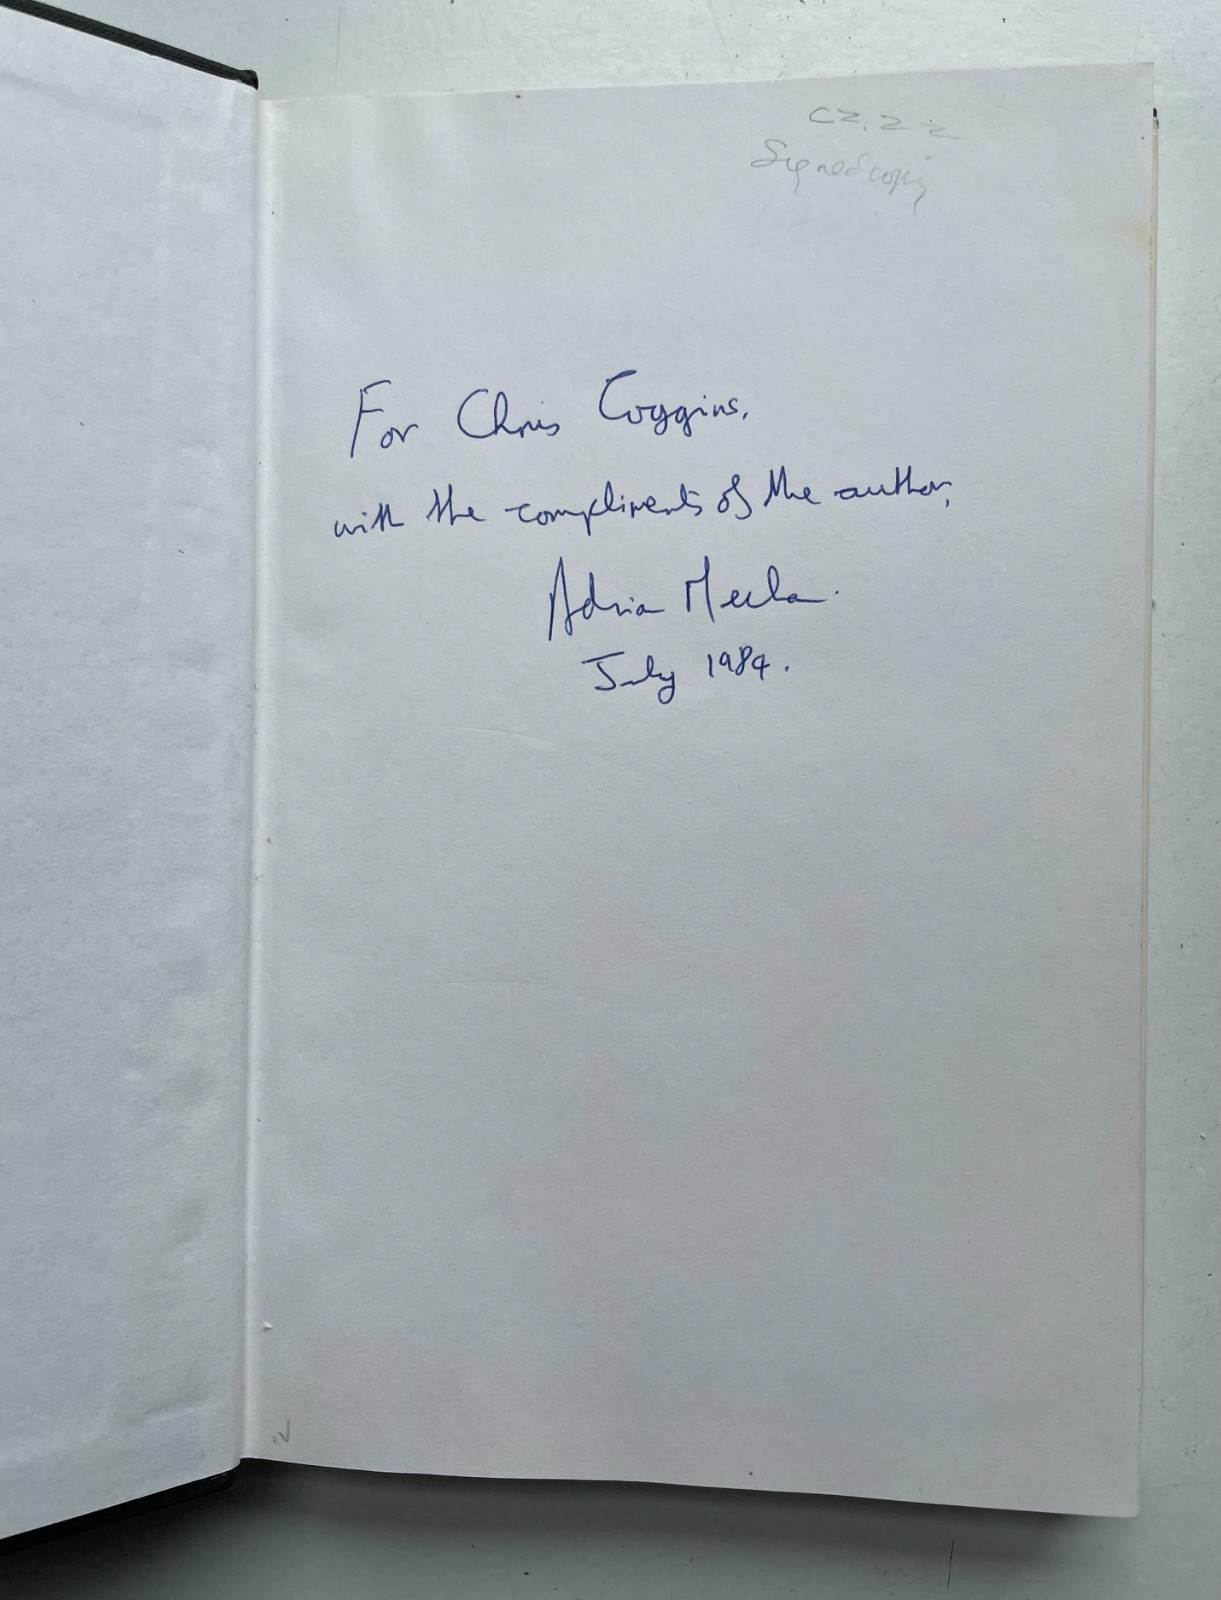 Signed copy
For Chris Coggins,
with the compliments of the author,
July 1984.